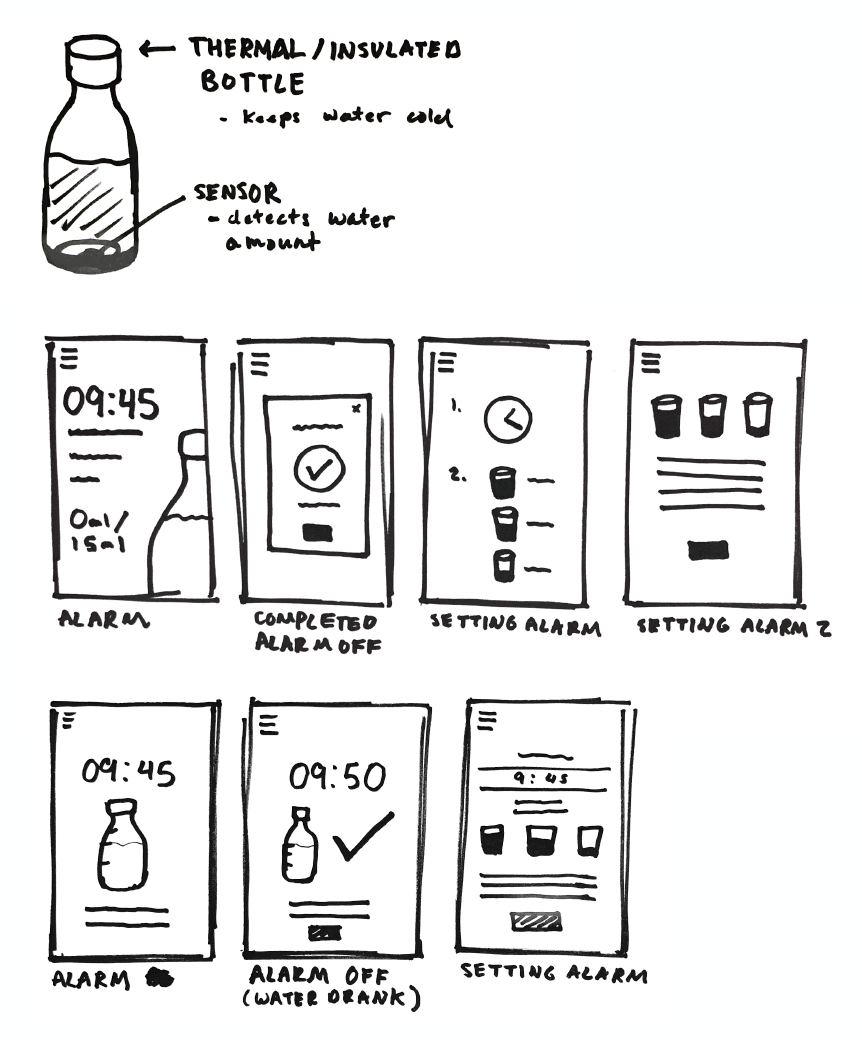 THERMAL/INSULATED
BOTTLE
- keeps water cold
SENSOR
- detects water
amount
09:45
0ml/
15ml
ALARM
x
COMPLETED
ALARM OFF
1.
2.
SETTING ALARM
SETTING ALARM 2
09:45
ALARM
09:50
ALARM OFF
(WATER DRANK)
9:45
SETTING ALARM